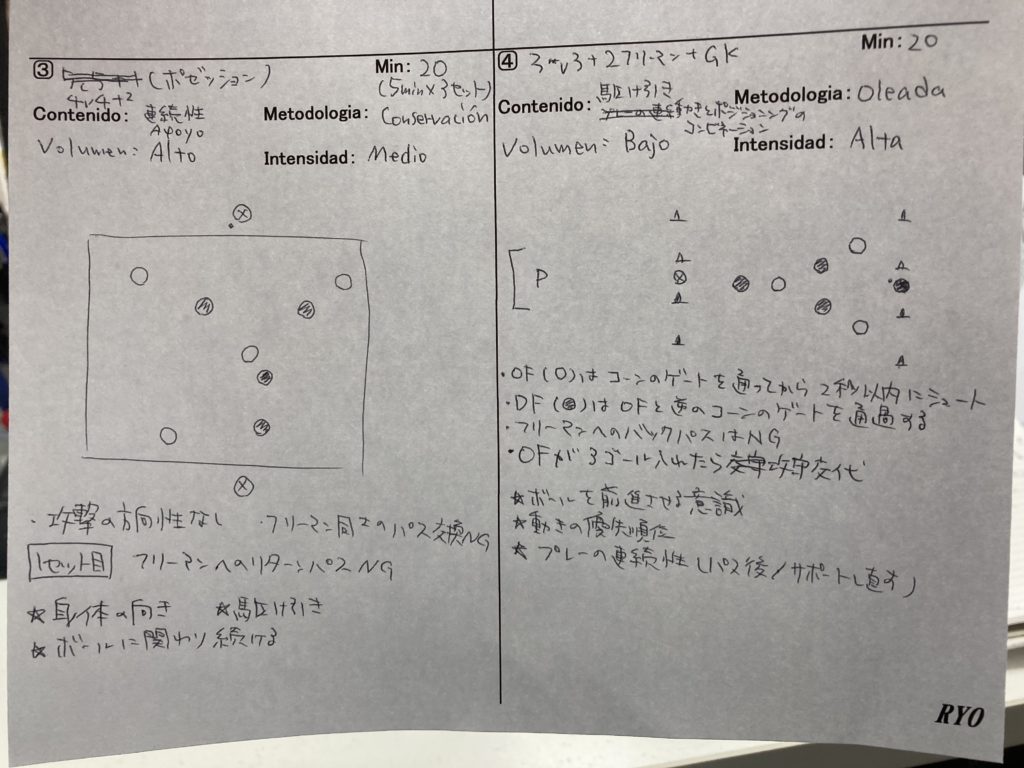 ③ (ポゼッション)
4v4+2
Min: 20
(5min×3セット)
Contenido: 連続性
Apoyo
Metodologia: Conservación
Volumen: Alto
Intensidad: Medio
・攻撃の方向性なし ・フリーマン同士のパス交換NG
1セット目 フリーマンへのリターンパスNG
☆身体の向き ☆駆け引き
☆ボールに関わり続ける
④ 3v3+2フリーマン+GK
Min: 20
Contenido: 駆け引き
動きとポジショニングの
コンビネーション
Metodologia: Oleada
Volumen: Bajo
Intensidad: Alta
P
・OF(○)はコーンのゲートを通ってから2秒以内にシュート
・DF(●)はOFと逆のコーンのゲートを通過する
・フリーマンへのバックパスはNG
・OFが3ゴール入れたら攻守交代
☆ボールを前進させる意識
☆動きの優先順位
☆プレーの連続性(パス後/サポートし直す)
RYO